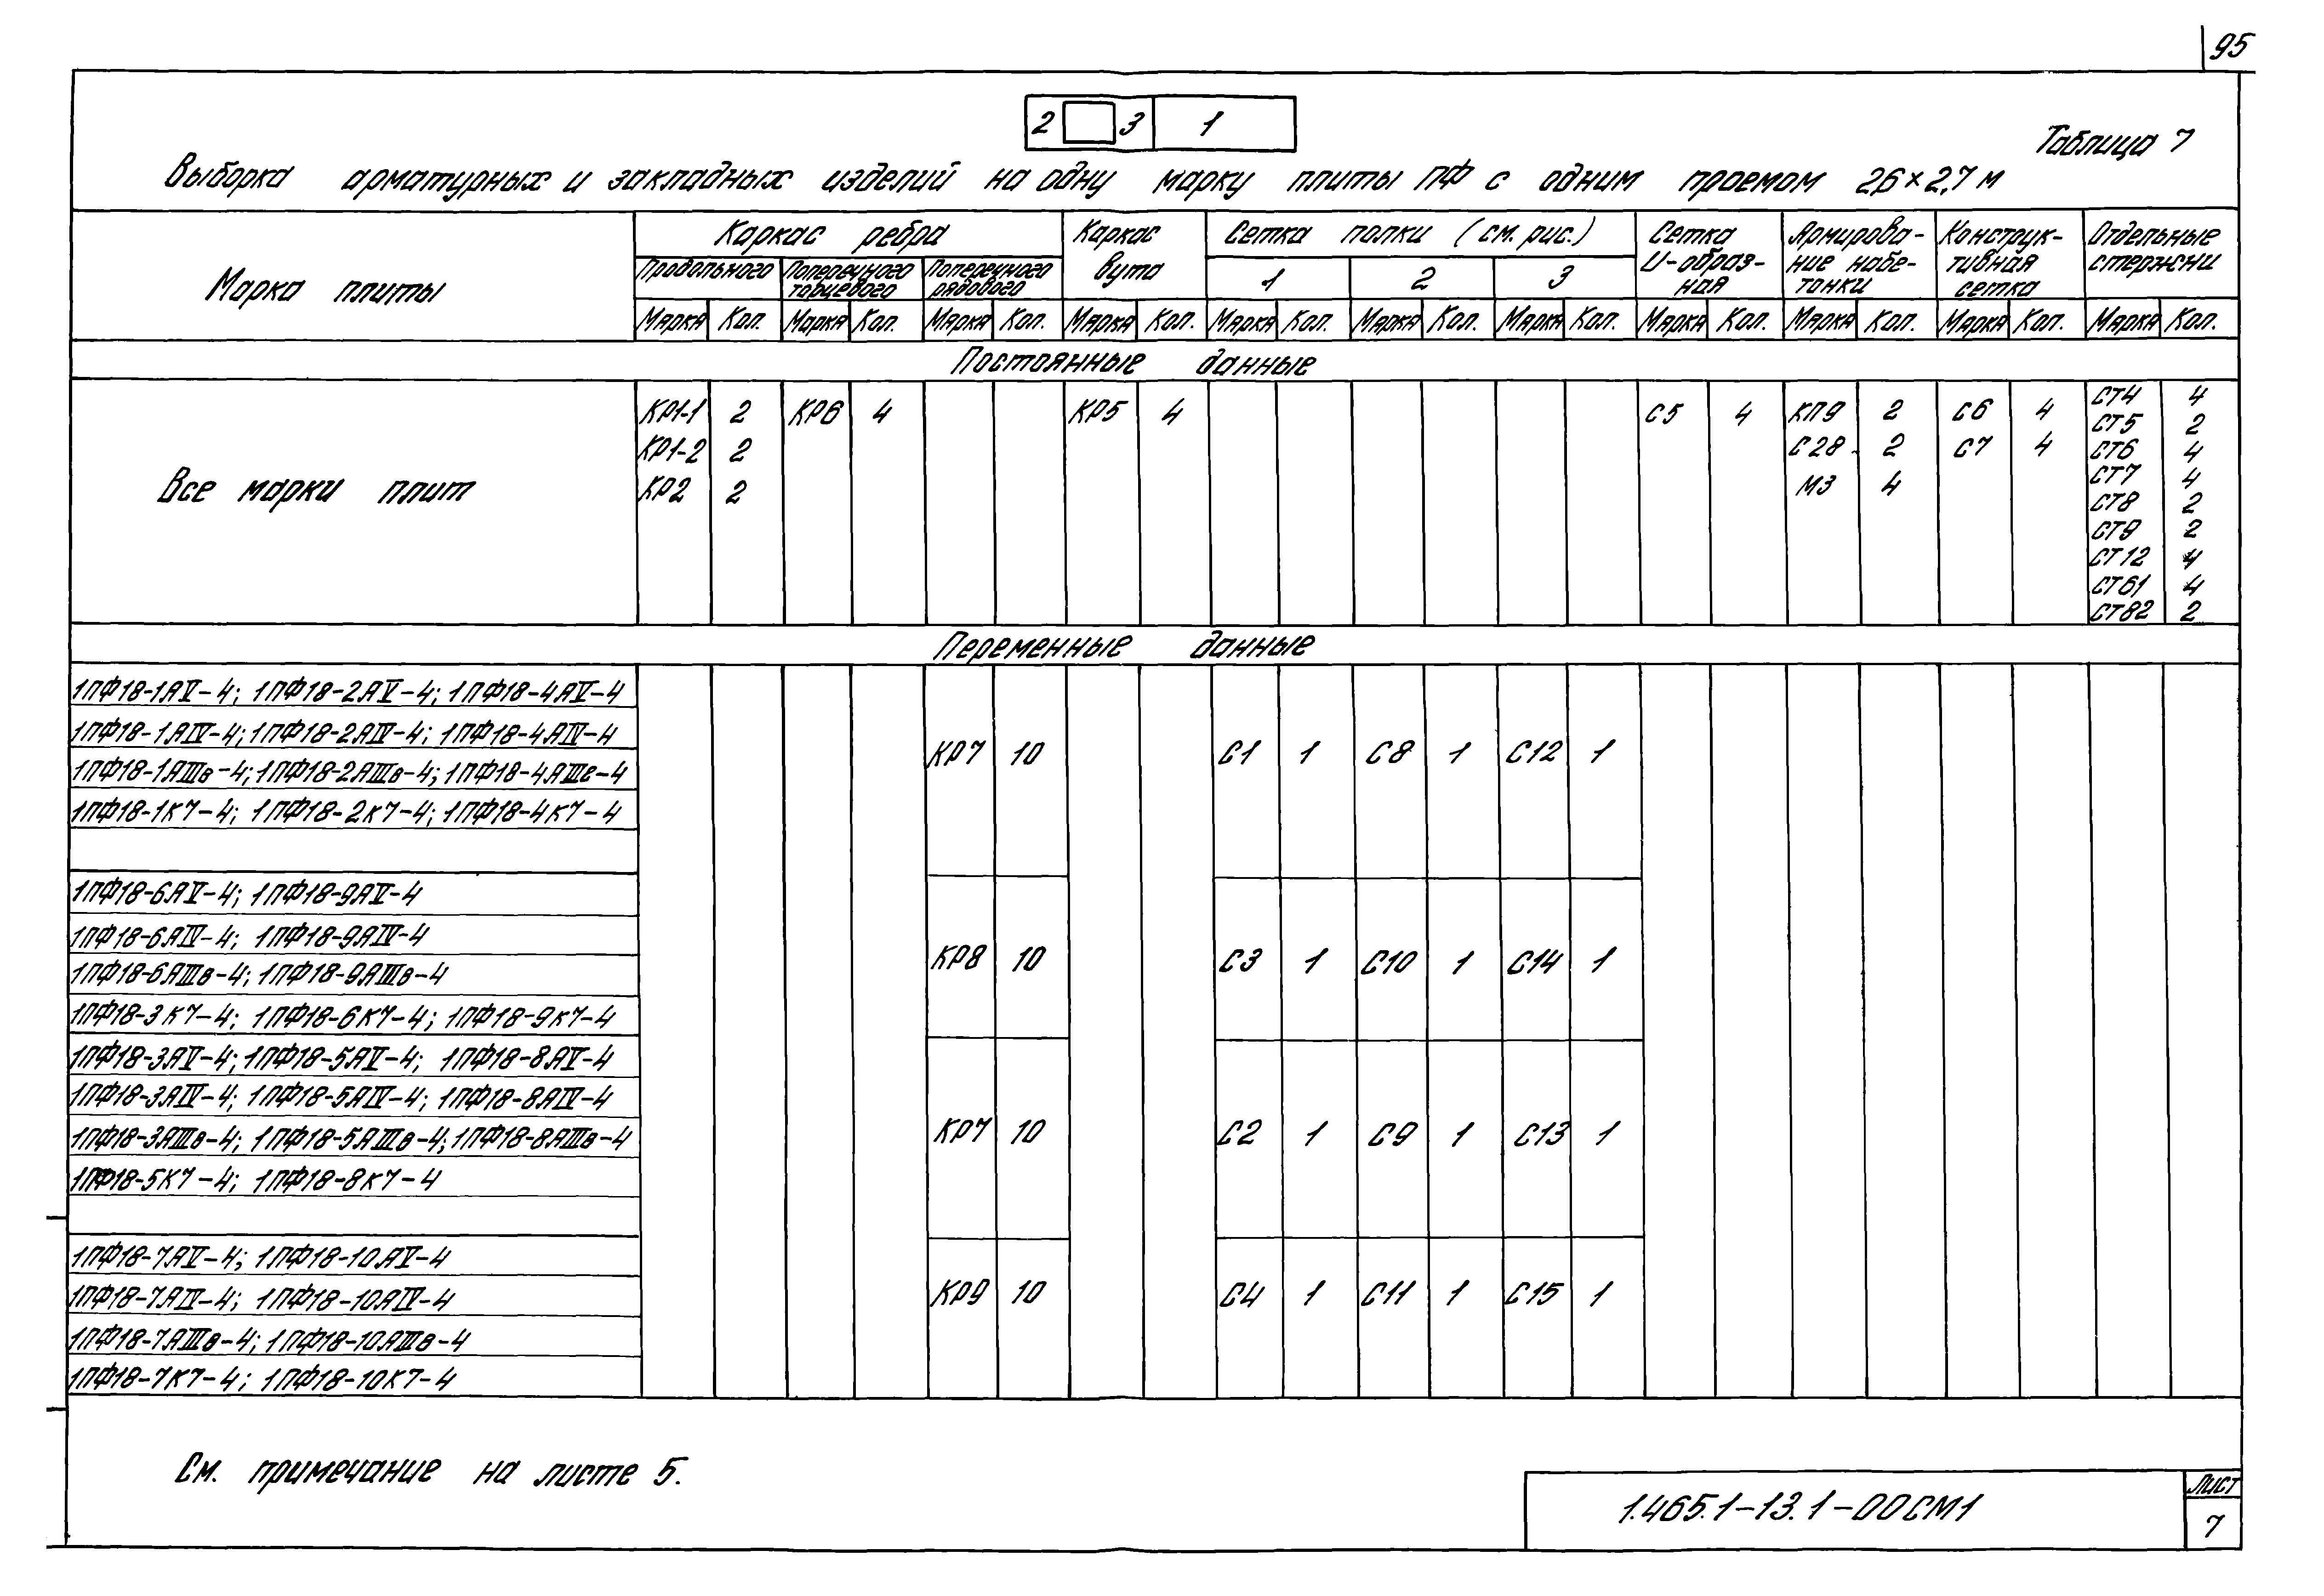 95
2 3 1
Таблица 7
Выборка арматурных и закладных изделий на одну марку плиты ПФ с одним проемом 2,6×2,7 м
Марка плиты
Каркас ребра
Продольного
Поперечного торцевого
Поперечного рядового
Каркас вута
Сетка полки (см. рис.)
1 2 3
Сетка U-образ-
ная
Армирова-
ние набе-
тонки
Конструк-
тивная
сетка
Отдельные
стержни
Марка Кол. Марка Кол. Марка Кол. Марка Кол. Марка Кол. Марка Кол. Марка Кол. Марка Кол. Марка Кол. Марка Кол. Марка Кол.
Постоянные данные
Все марки плит
КР1-1 2 КР6 4 КР5 4 С5 4 КП9 2 С6 4
КР1-2 2 С28 2 С7 4
КР2 2 М3 4
СТ4 4
СТ5 2
СТ6 4
СТ7 4
СТ8 2
СТ9 2
СТ12 4
СТ61 4
СТ82 2
Переменные данные
1ПФ18-1АV-4; 1ПФ18-2АV-4; 1ПФ18-4АV-4
1ПФ18-1АIV-4; 1ПФ18-2АIV-4; 1ПФ18-4АIV-4
1ПФ18-1АIIIв-4; 1ПФ18-2АIIIв-4; 1ПФ18-4АIIIв-4
1ПФ18-1К7-4; 1ПФ18-2К7-4; 1ПФ18-4К7-4
КР7 10 С1 1 С8 1 С12 1
1ПФ18-6АV-4; 1ПФ18-9АV-4
1ПФ18-6АIV-4; 1ПФ18-9АIV-4
1ПФ18-6АIIIв-4; 1ПФ18-9АIIIв-4
1ПФ18-3К7-4; 1ПФ18-6К7-4; 1ПФ18-9К7-4
КР8 10 С3 1 С10 1 С14 1
1ПФ18-3АV-4; 1ПФ18-5АV-4; 1ПФ18-8АV-4
1ПФ18-3АIV-4; 1ПФ18-5АIV-4; 1ПФ18-8АIV-4
1ПФ18-3АIIIв-4; 1ПФ18-5АIIIв-4; 1ПФ18-8АIIIв-4
1ПФ18-5К7-4; 1ПФ18-8К7-4
КР7 10 С2 1 С9 1 С13 1
1ПФ18-7АV-4; 1ПФ18-10АV-4
1ПФ18-7АIV-4; 1ПФ18-10АIV-4
1ПФ18-7АIIIв-4; 1ПФ18-10АIIIв-4
1ПФ18-7К7-4; 1ПФ18-10К7-4
КР9 10 С4 1 С11 1 С15 1
См. примечание на листе 5.
1.465.1-13.1-00СМ1
Лист
7